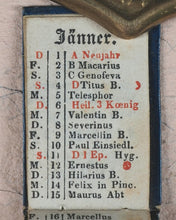 Jänner.
D 1 A Neujahr
F. 2 B Macarius
S. 3 C Genofeva
S. 4 D Titus B.
M. 5 Telesphor
D. 6 Heil. 3 Kœnig
M. 7 Valentin B.
D. 8 Severinus
F. 9 Marcellin B.
S. 10 Paul Einsiedl.
S. 11 D 1 Ep. Hyg.
M. 12 Ernestus
D. 13 Hilarius B.
M. 14 Felix in Pinc.
D. 15 Maurus Abt
F. 16 Marcellus